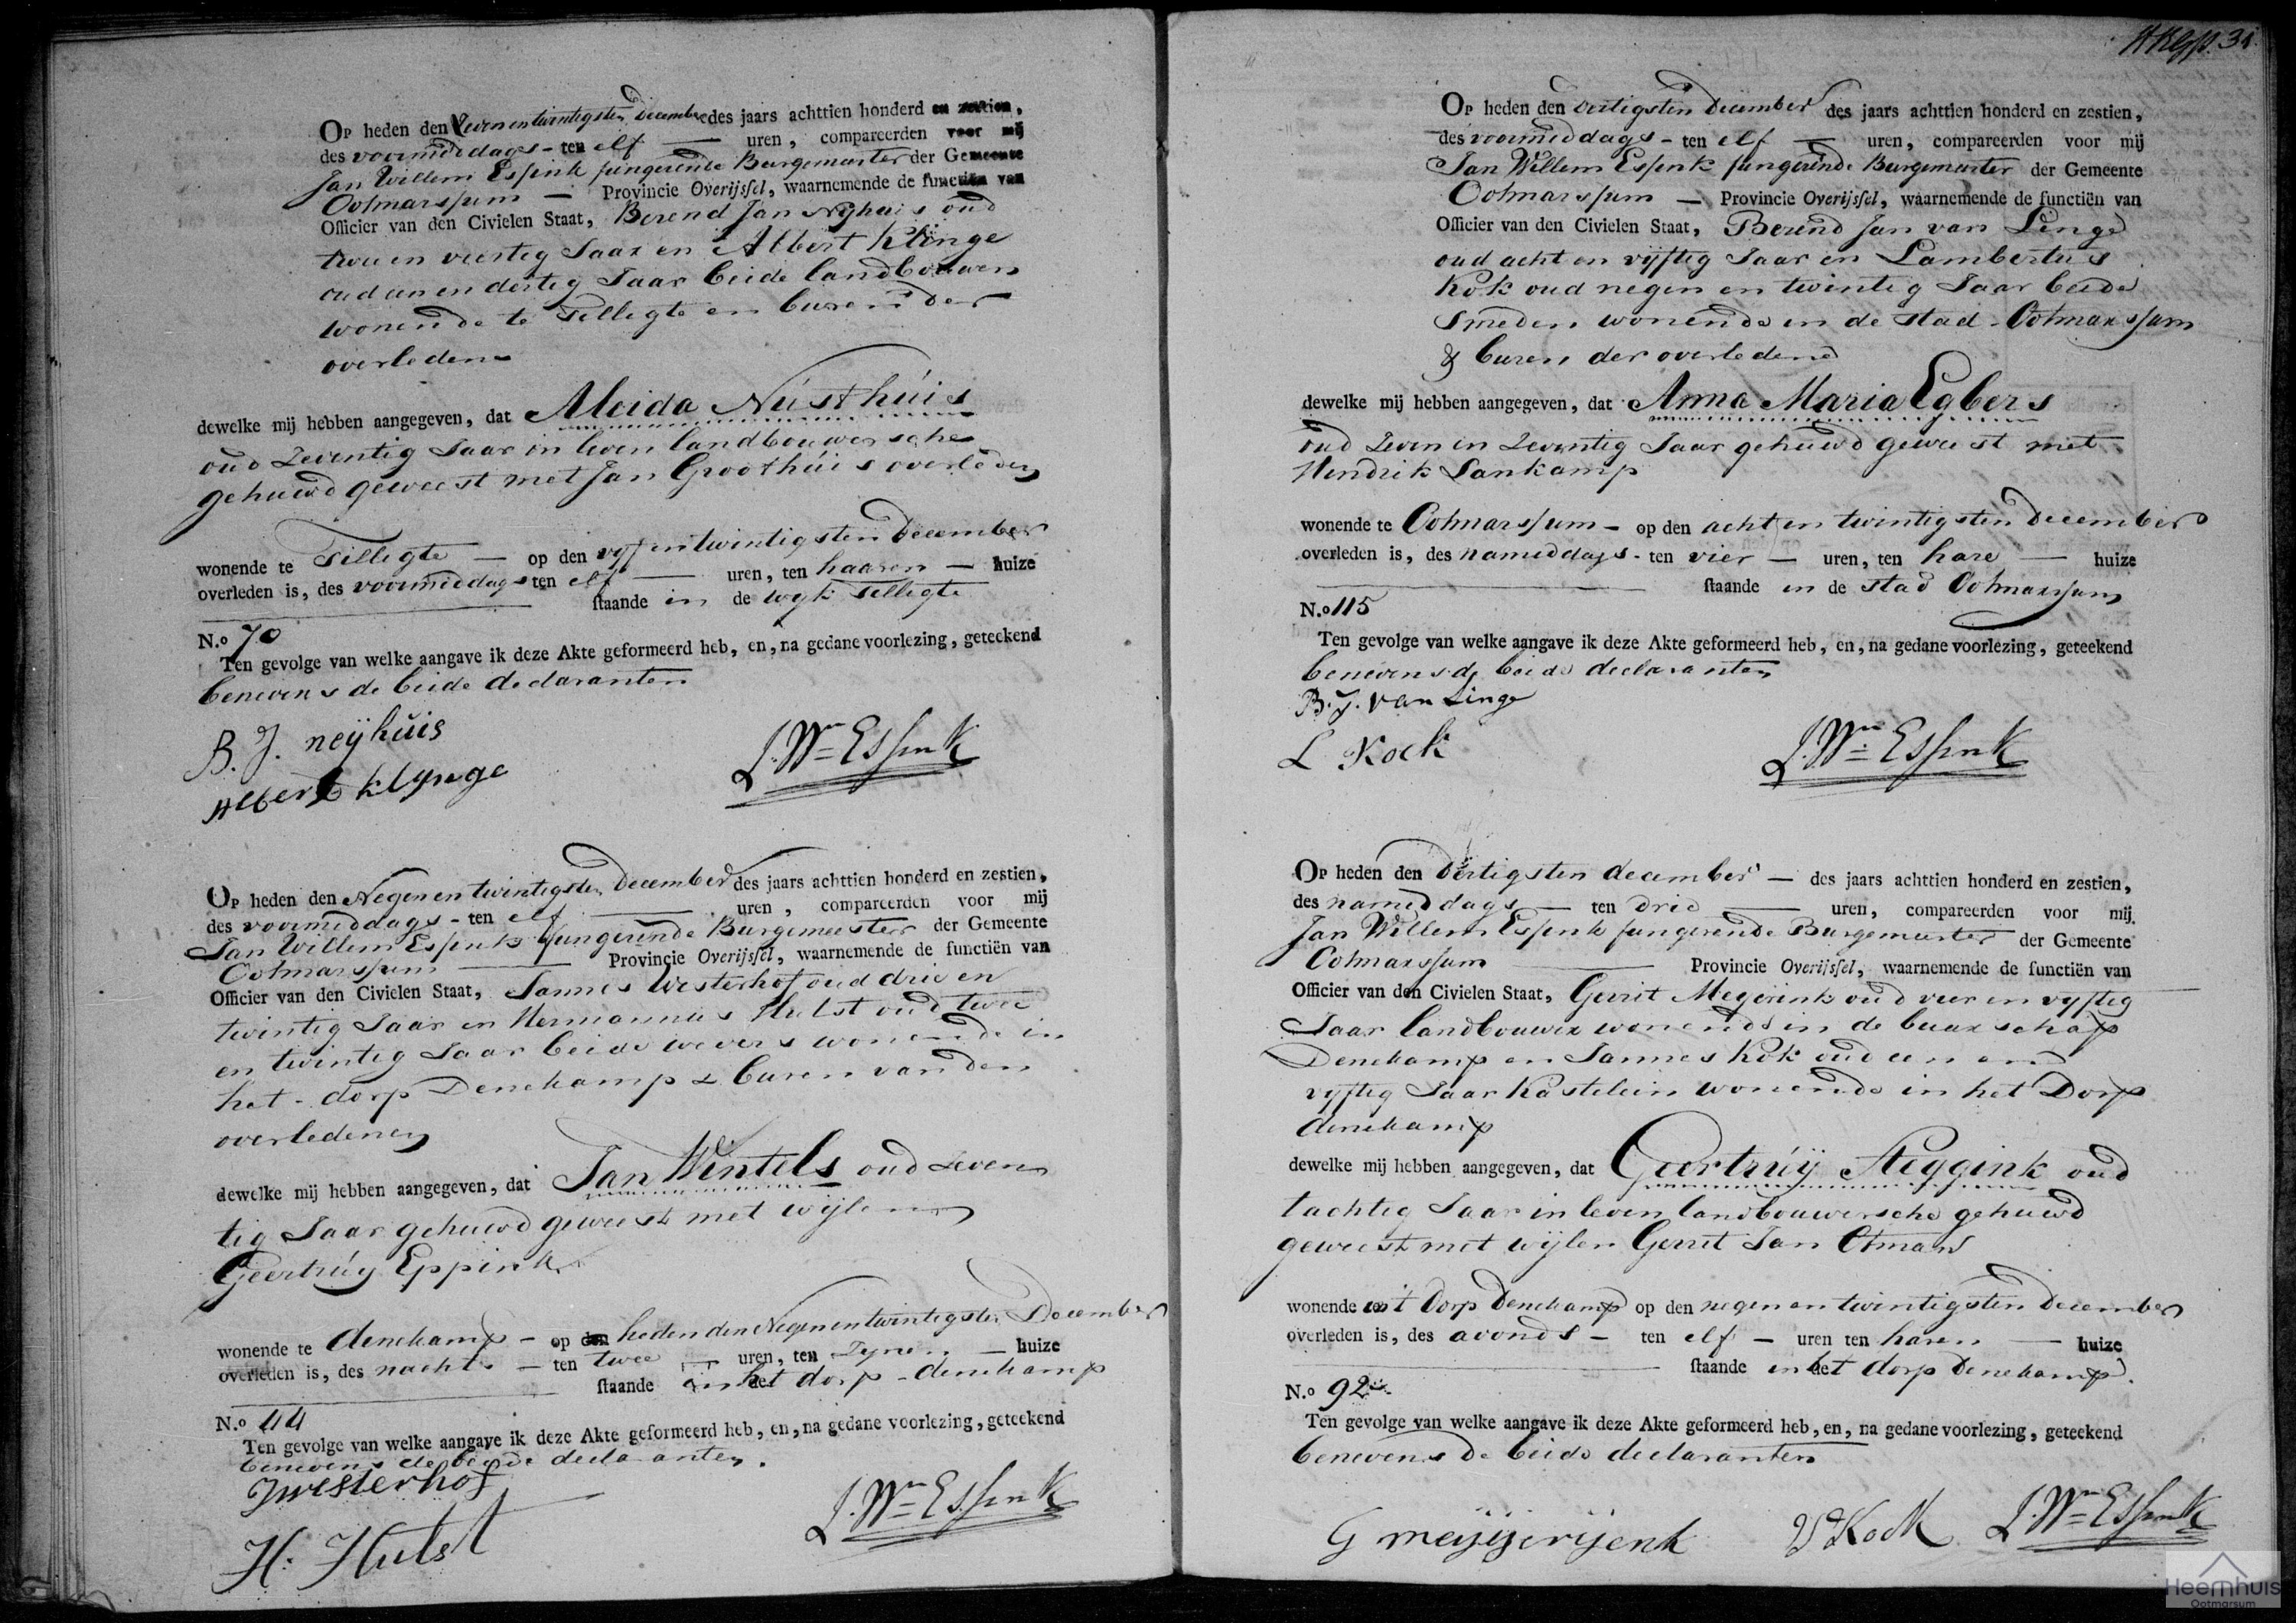 Op heden den Zevenentwintigsten December des jaars achttien honderd en zestien,
des voormiddags - ten elf — uren, compareerden voor mij
Jan Willem Essink fungerende Burgemeester der Gemeente
Ootmarssum — Provincie Overijssel, waarnemende de functiën van
Officier van den Civielen Staat, Berend Jan Nyhuis oud
twee en veertig Jaar en Albert Klinge
oud een en dertig Jaar beide landbouwers
wonende te Tilligte en buren der
overledene
dewelke mij hebben aangegeven, dat Aleida Nústhúis
oud Zeventig Jaar in leven landbouwersche
gehuwd geweest met Jan Groothúis overleden
wonende te Tilligte — op den vyfentwintigsten December
overleden is, des voormiddags ten elf — uren, ten haaren — huize
staande in de wyk Tilligte
N.o 70
Ten gevolge van welke aangave ik deze Akte geformeerd heb, en, na gedane voorlezing, geteekend
benevens de beide declaranten
B. J. neijhuis
Albert klynge
J. Wm Essink
Op heden den Negenentwintigsten December des jaars achttien honderd en zestien,
des voormiddags - ten elf — uren, compareerden voor mij
Jan Willem Essink fungerende Burgemeester der Gemeente
Ootmarssum — Provincie Overijssel, waarnemende de functiën van
Officier van den Civielen Staat, Jannes Westerhof oud drie en
twintig Jaar en Hermannus Hulst oud twee
en twintig Jaar beide wevers wonende in
het - dorp Denekamp & buren van den
overledenen
dewelke mij hebben aangegeven, dat Jan Wintels oud zeven
tig Jaar gehuwd geweest met wijlen
Geertrúy Eppink
wonende te denekamp - op heden den Negenentwintigsten December
overleden is, des nachts - ten twee — uren, ten Zynen — huize
staande in het dorp - denekamp
N.o 44
Ten gevolge van welke aangave ik deze Akte geformeerd heb, en, na gedane voorlezing, geteekend
benevens de beide declaranten.
J westerhof
H. Hulst
J. Wm Essink
31.
Op heden den dertigsten December des jaars achttien honderd en zestien,
des voormiddags - ten elf — uren, compareerden voor mij
Jan Willem Essink fungerende Burgemeester der Gemeente
Ootmarssum — Provincie Overijssel, waarnemende de functiën van
Officier van den Civielen Staat, Berend Jan van Linge
oud acht en vyftig Jaar en Lambertus
Kok oud negen en twintig Jaar beide
Smeden wonende in de stad - Ootmarssum
& buren der overledene
dewelke mij hebben aangegeven, dat Anna Maria Egbers
oud Zeven en Zeventig Jaar gehuwd geweest met
Hendrik Lankamp
wonende te Ootmarssum - op den acht en twintigsten December
overleden is, des nameddags - ten vier — uren, ten hare — huize
staande in de stad Ootmarssum
N.o 115
Ten gevolge van welke aangave ik deze Akte geformeerd heb, en, na gedane voorlezing, geteekend
benevens de beide declaranten
B. J. van Linge
L Kock
J. Wm Essink
Op heden den dertigsten december — des jaars achttien honderd en zestien,
des nameddags — ten drie — uren, compareerden voor mij
Jan Willem Essink fungerende Burgemeester der Gemeente
Ootmarssum — Provincie Overijssel, waarnemende de functiën van
Officier van den Civielen Staat, Gerrit Megerink oud vier en vyftig
Jaar landbouwer wonende in de buurschap
Denekamp en Jannes Kok oud een en
vyftig Jaar Kastelein wonende in het Dorp
denekamp
dewelke mij hebben aangegeven, dat Geertrúÿ Steggink oud
tachtig Jaar in leven landbouwersche gehuwd
geweest met wijlen Gerrit Jan Otman
wonende int Dorp Denekamp op den negenentwintigsten December
overleden is, des avonds - ten elf - uren ten haren — huize
staande in het dorp Denekamp.
N.o 92
Ten gevolge van welke aangave ik deze Akte geformeerd heb, en, na gedane voorlezing, geteekend
benevens de beide declaranten
G meijgerijenk
Kock
J. Wm Essink
Heemhuis
Ootmarsum